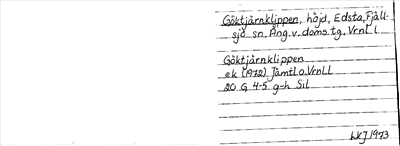 Göktjärnklippen, höjd, Edsta, Fjäll-
sjö sn. Ång. v. doms. tg. Vrnl l.
Göktjärnklippen
ek (1972) Jämtl o. Vrnll
20 G 4-5 g-h Sil
LKJ 1973